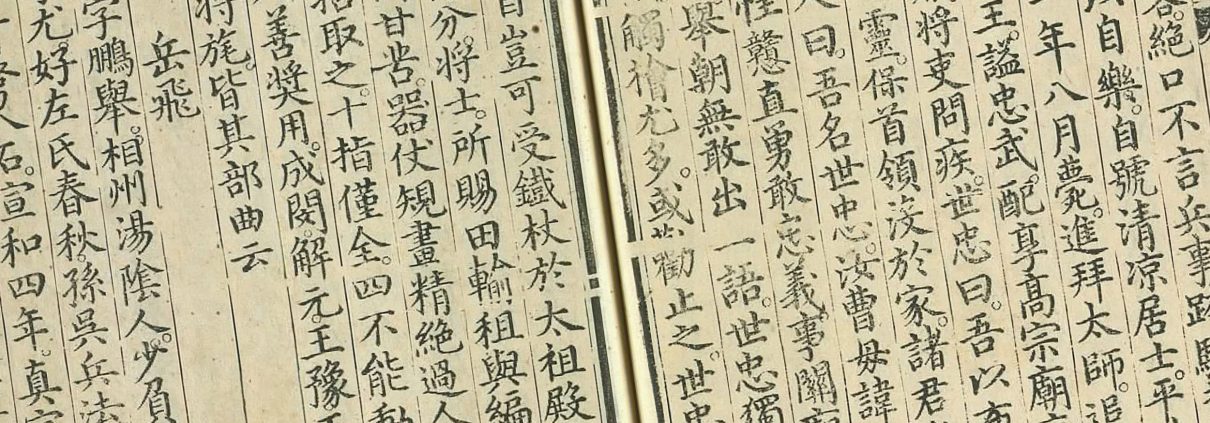 絕口不言兵事
自樂。自號清凉居士。平
年八月薨。進拜太師。追
王。諡忠武。配享高宗廟
將吏問疾。世忠曰。吾以布
靈。保首領沒於家。諸君
曰。吾名世忠。汝曹毋諱
性戇直勇敢忠義。事關
舉朝無敢出一語。世忠獨
觸檜尤多。或勸止之。世忠
豈可受鐵杖於太祖殿
分將士。所賜田輸租與編
甘苦。器仗䂓畫精絕過人
取之。十指僅全。四不能動
善奬用。成閔。解元。王
將旄。皆其部曲云
岳飛
字鵬舉。相州湯陰人。少負
尤好左氏春秋。孫吳兵法
石。宣和四年。真定